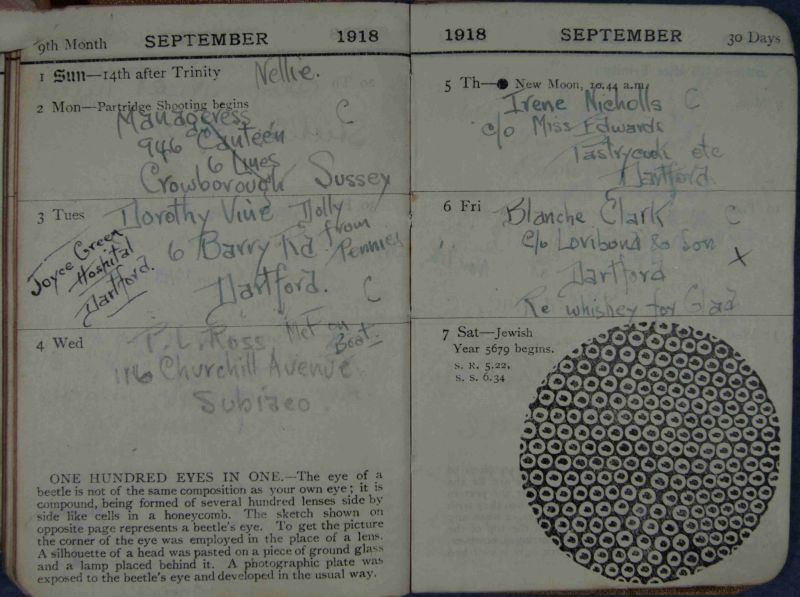 9th Month SEPTEMBER 1918
1 Sun—14th after Trinity Nellie.
2 Mon—Partridge Shooting begins
Manageress C
946 Canteen
6 Lines
Crowborough Sussex
3 Tues Dorothy Vine Dolly
6 Barry Rd from
Pennies
Dartford. C
Joyce Green
Hospital
Dartford.
4 Wed P. L. Ross Met on
Boat.
116 Churchill Avenue
Subiaco.
ONE HUNDRED EYES IN ONE.—The eye of a
beetle is not of the same composition as your own eye; it is
compound, being formed of several hundred lenses side by
side like cells in a honeycomb. The sketch shown on
opposite page represents a beetle's eye. To get the picture
the corner of the eye was employed in the place of a lens.
A silhouette of a head was pasted on a piece of ground glass
and a lamp placed behind it. A photographic plate was
exposed to the beetle's eye and developed in the usual way.
1918 SEPTEMBER 30 Days
5 Th—● New Moon, 10.44 a.m.
Irene Nicholls C
c/o Miss Edwards
Pastrycook etc
Dartford.
6 Fri Blanche Clark C
c/o Loribond & Son
Dartford X
Re whiskey for Glad
7 Sat—Jewish
Year 5679 begins.
S. R. 5.22,
S. S. 6.34